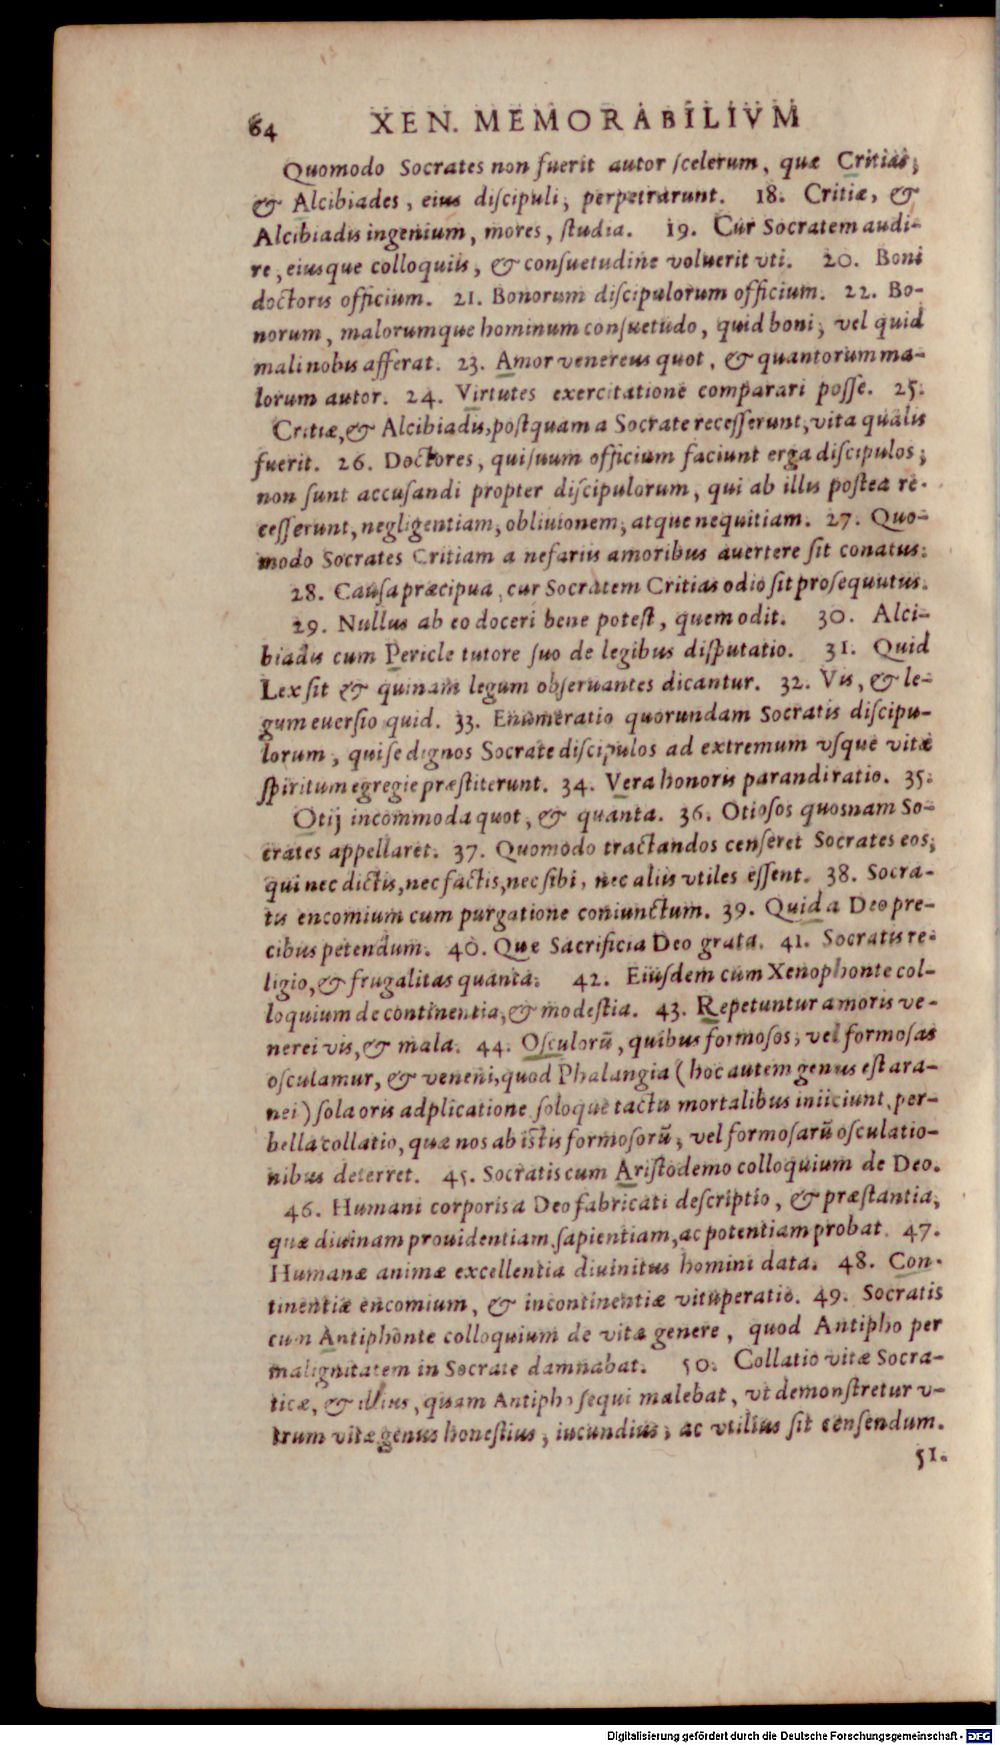 64 XEN. MEMORABILIVM
Quomodo Socrates non fuerit autor ſcelerum, quæ Critias,
& Alcibiades, eius diſcipuli, perpetrarunt. 18. Critiæ, &
Alcibiadis ingenium, mores, ſtudia. 19. Cur Socratem audi-
re, eiusque colloquiis, & conſuetudine voluerit vti. 20. Boni
doctoris officium. 21. Bonorum diſcipulorum officium. 22. Bo-
norum, malorumque hominum conſuetudo, quid boni, vel quid
mali nobis afferat. 23. Amor venereus quot, & quantorum ma-
lorum autor. 24. Virtutes exercitatione comparari poſſe. 25.
Critiæ, & Alcibiadis, poſtquam a Socrate receſſerunt, vita qualis
fuerit. 26. Doctores, qui ſuum officium faciunt erga diſcipulos,
non ſunt accuſandi propter diſcipulorum, qui ab illis poſtea re-
ceſſerunt, negligentiam, obliuionem, atque nequitiam. 27. Quo-
modo Socrates Critiam a nefariis amoribus auertere ſit conatus.
28. Cauſa præcipua, cur Socratem Critias odio ſit proſequutus.
29. Nullus ab eo doceri bene poteſt, quem odit. 30. Alci-
biadis cum Pericle tutore ſuo de legibus diſputatio. 31. Quid
Lex ſit & quinam legum obſeruantes dicantur. 32. Vis, & le-
gum euerſio quid. 33. Enumeratio quorundam Socratis diſcipu-
lorum, qui ſe dignos Socrate diſcipulos ad extremum vſque vitæ
ſpiritum egregie præſtiterunt. 34. Vera honoris parandi ratio. 35.
Otij incommoda quot, & quanta. 36. Otioſos quosnam So-
crates appellaret. 37. Quomodo tractandos cenſeret Socrates eos,
qui nec dictis, nec factis, nec ſibi, nec aliis vtiles eſſent. 38. Socra-
tis encomium cum purgatione coniunctum. 39. Quid a Deo pre-
cibus petendum. 40. Que Sacrificia Deo grata. 41. Socratis re-
ligio, & frugalitas quanta. 42. Eiuſdem cum Xenophonte col-
loquium de continentia, & modeſtia. 43. Repetuntur amoris ve-
nerei vis, & mala. 44. Oſculorũ, quibus formoſos, vel formoſas
oſculamur, & veneni, quod Phalangia (hoc autem genus eſt ara-
nei) ſola oris adplicatione ſoloque tactu mortalibus iniiciunt, per-
bella collatio, quæ nos ab iſtis formoſorũ, vel formoſarũ oſculatio-
nibus deterret. 45. Socratis cum Ariſtodemo colloquium de Deo.
46. Humani corporis a Deo fabricati deſcriptio, & præſtantia,
quæ diuinam prouidentiam, ſapientiam, ac potentiam probat. 47.
Humanæ animæ excellentia diuinitus homini data. 48. Con-
tinentiæ encomium, & incontinentiæ vituperatio. 49. Socratis
cum Antiphonte colloquium de vitæ genere, quod Antipho per
malignitatem in Socrate damnabat. 50. Collatio vitæ Socra-
ticæ, & illius, quam Antipho ſequi malebat, vt demonſtretur v-
trum vitæ genus honeſtius, iucundius, ac vtilius ſit cenſendum.
51.
Digitalisierung gefördert durch die Deutsche Forschungsgemeinschaft - DFG